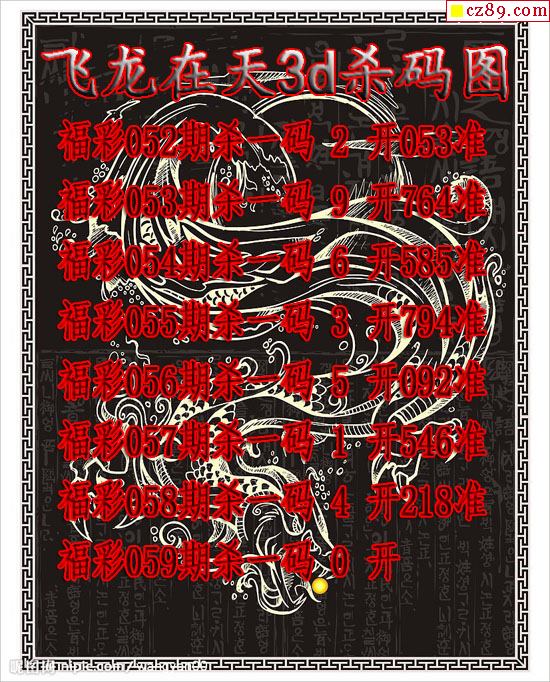 cz89.com
飞龙在天3d杀码图
福彩052期杀一码 2 开053准
福彩053期杀一码 9 开764准
福彩054期杀一码 6 开585准
福彩055期杀一码 3 开794准
福彩056期杀一码 5 开092准
福彩057期杀一码 1 开546准
福彩058期杀一码 4 开218准
福彩059期杀一码 0 开